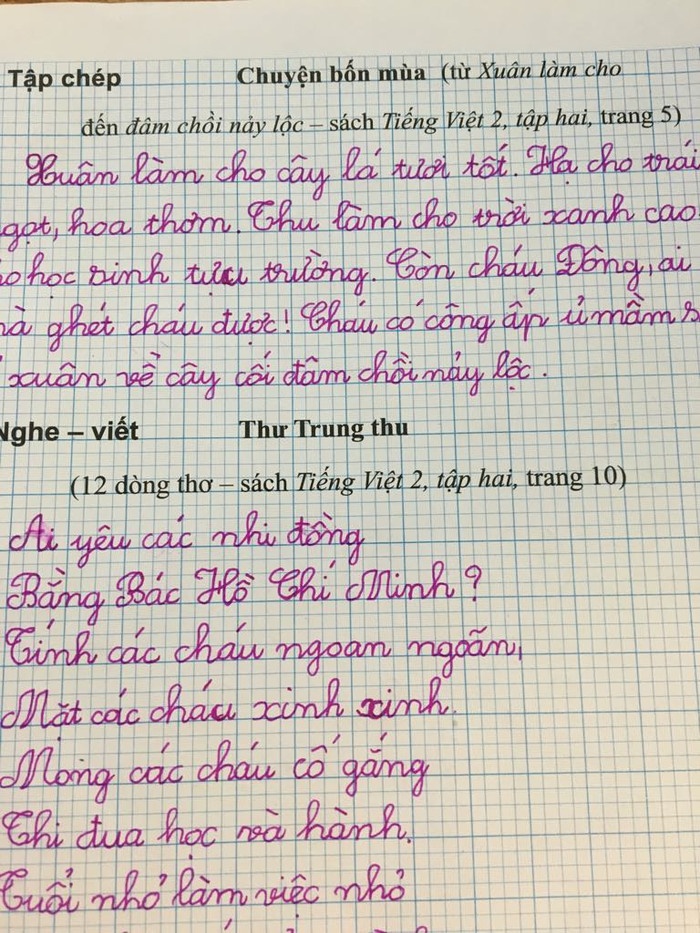 Tập chép Chuyện bốn mùa (từ Xuân làm cho
đến đâm chồi nảy lộc – sách Tiếng Việt 2, tập hai, trang 5)
Xuân làm cho cây lá tươi tốt. Hạ cho trái
ngọt, hoa thơm. Thu làm cho trời xanh cao
học sinh tựu trường. Còn cháu Đông, ai
mà ghét cháu được! Cháu có công ấp ủ mầm
xuân về cây cối đâm chồi nảy lộc.
Nghe – viết Thư Trung thu
(12 dòng thơ – sách Tiếng Việt 2, tập hai, trang 10)
Ai yêu các nhi đồng
Bằng Bác Hồ Chí Minh?
Tính các cháu ngoan ngoãn,
Mặt các cháu xinh xinh.
Mong các cháu cố gắng
Thi đua học và hành.
Tuổi nhỏ làm việc nhỏ